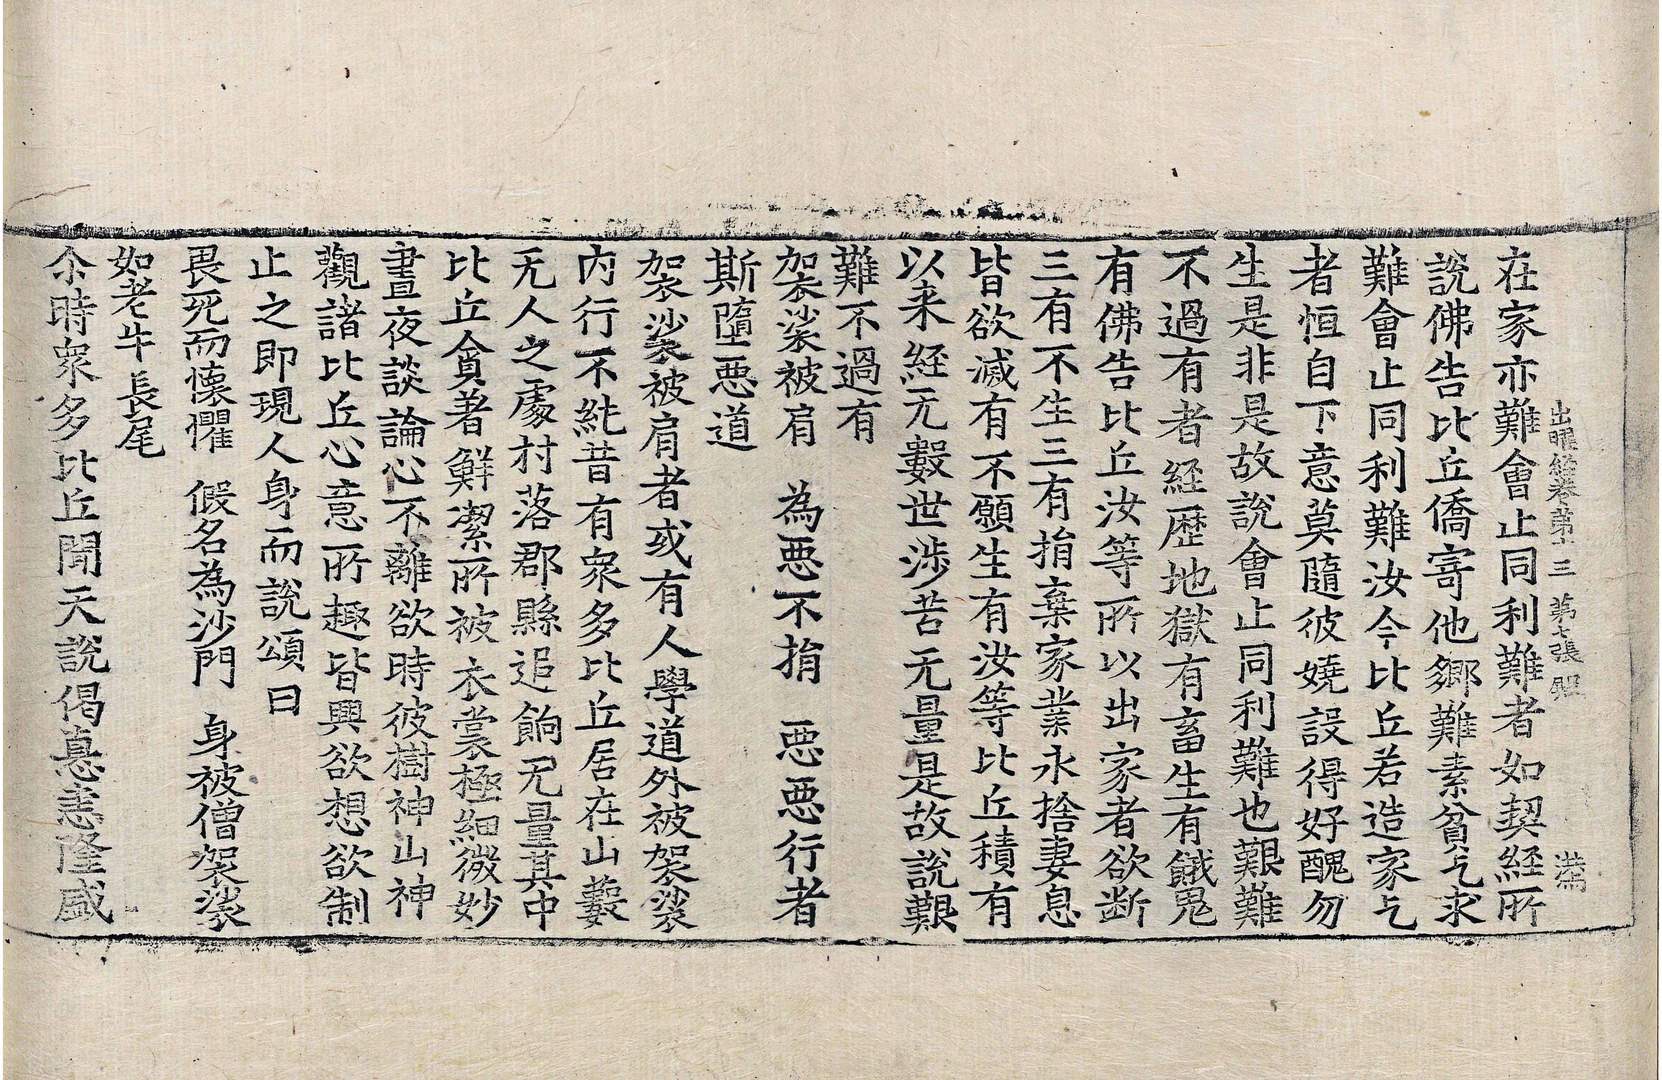 出曜經卷第十三 第七張 滿
在家亦難會止同利難者如契經所
說佛告比丘僑寄他鄉難素貧乞求
難會止同利難汝今比丘若造家乞
者恒自下意莫隨彼嬈設得好醜勿
生是非是故說會止同利難也艱難
不過有者經歷地獄有畜生有餓鬼
有佛告比丘汝等所以出家者欲断
三有不生三有捐棄家業永捨妻息
皆欲滅有不願生有汝等比丘積有
以来經无數世涉苦无量是故說艱
難不過有
袈裟被肩 為惡不捐 惡惡行者
斯墮惡道
袈裟被肩者或有人學道外被袈裟
內行不純昔有衆多比丘居在山藪
无人之處村落郡縣追餉无量其中
比丘貪著鮮潔所被衣裳極細微妙
晝夜談論心不離欲時彼樹神山神
觀諸比丘心意所趣皆興欲想欲制
止之即現人身而說頌曰
畏死而懷懼 假名為沙門 身被僧袈裟
如老牛長尾
尒時衆多比丘聞天說偈恚恚隆盛